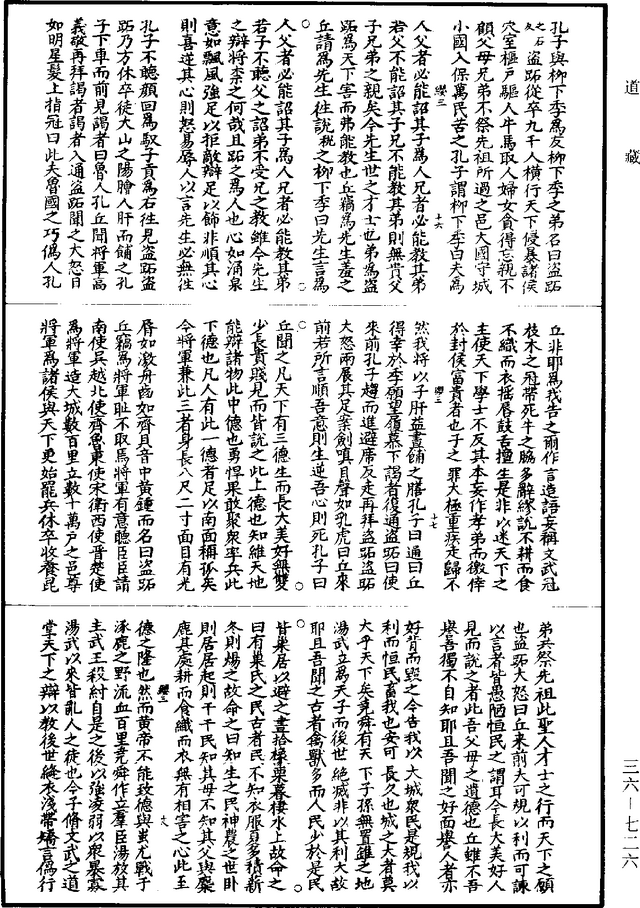 道藏
孔子與柳下季爲友柳下季之弟名曰盜跖
盜跖從卒九千人橫行天下侵暴諸侯
穴室樞戶驅人牛馬取人婦女貪得忘親不
顧父母兄弟不祭先祖所過之邑大國守城
小國入保萬民苦之孔子謂柳下季曰夫爲
十六
人父者必能詔其子爲人兄者必能教其弟
若父不能詔其子兄不能教其弟則無貴父
子兄弟之親矣今先生世之才士也弟爲盜
跖爲天下害而弗能教也丘竊爲先生羞之
丘請爲先生往說稅之柳下季曰先生言爲
人父者必能詔其子爲人兄者必能教其弟
若子不聽父之詔弟不受兄之教雖今先生
之辯將柰之何哉且跖之爲人也心如涌泉
意如飄風強足以拒敵辯足以飾非順其心
則喜逆其心則怒易辱人以言先生必無往
孔子不聽顏回爲馭子貢爲右往見盜跖盜
跖乃方休卒徒大山之陽膾人肝而餔之孔
子下車而前見謁者曰魯人孔丘聞將軍高
義敬再拜謁者謁者入通盜跖聞之大怒目
如明星髮上指冠曰此夫魯國之巧僞人孔
丘非耶爲我告之爾作言造語妄稱文武冠
枝木之冠帶死牛之脇多辭繆說不耕而食
不織而衣搖脣鼓舌擅生是非以迷天下之
主使天下學士不反其本妄作孝弟而僥倖
於封侯富貴者也子之罪大極重疾走歸不
十七
然我將以子肝益晝餔之膳孔子曰通曰丘
得幸於季願望履幕下謁者復通盜跖曰使
來前孔子趨而進避席反走再拜盜跖盜跖
大怒兩展其足案劒嗔目聲如乳虎曰丘來
前若所言順吾意則生逆吾心則死孔子曰
丘聞之凡天下有三德生而長大美好無雙
少長貴賤見而皆說之此上德也知維天地
能辯諸物此中德也勇悍果敢聚衆率兵此
下德也凡人有此一德者足以南面稱孤矣
今將軍兼此三者身長八尺二寸面目有光
脣如激丹齒如齊貝音中黃鍾而名曰盜跖
丘竊爲將軍耻不取焉將軍有意聽臣臣請
南使吳越北使齊魯東使宋衛西使晉楚使
爲將軍造大城數百里立數十萬戶之邑尊
將軍爲諸侯與天下更始罷兵休卒收養昆
弟共祭先祖此聖人才士之行而天下之願
也盜跖大怒曰丘來前夫可規以利而可諫
以言者皆愚陋恒民之謂耳今長大美好人
見而說之者此吾父母之遺德也丘雖不吾
譽吾獨不自知耶且吾聞之好面譽人者亦
好背而毀之今告我以大城衆民是規我以
利而恒民畜我也安可長久也城之大者莫
大乎天下矣堯舜有天下子孫無置錐之地
湯武立爲天子而後世絕滅非以其利大故
耶且吾聞之古者禽獸多而人民少於是民
皆巢居以避之晝拾橡栗暮棲木上故命之
曰有巢氏之民古者民不知衣服夏多積薪
冬則煬之故命之曰知生之民神農之世臥
則居居起則于于民知其母不知其父與麋
鹿其處耕而食織而衣無有相害之心此至
德之隆也然而黃帝不能致德與蚩尤戰于
涿鹿之野流血百里堯舜作立羣臣湯放其
主武王殺紂自是之後以強凌弱以衆暴寡
湯武以來皆亂人之徒也今子脩文武之道
掌天下之辯以教後世縫衣淺帶矯言僞行
三六—七二六